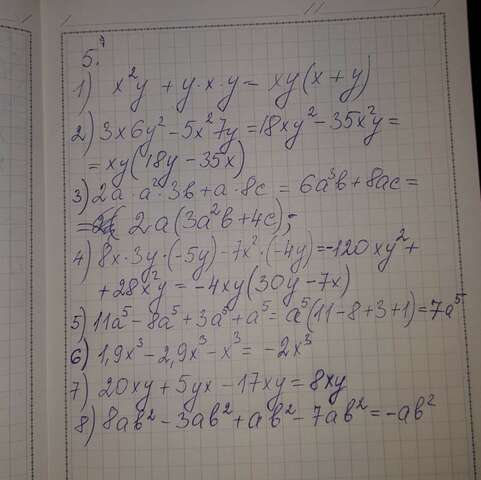 5.
1) x²y + y·x·y = xy(x + y)
2) 3x6y² - 5x²7y = 18xy² - 35x²y =
= xy(18y - 35x)
3) 2a · a² · 3b + a · 8c = 6a³b + 8ac =
= 2a(3a²b + 4c);
4) 8x · 3y · (-5y) - 7x² · (-4y) = -120xy² +
+ 28x²y = -4xy(30y - 7x)
5) 11a⁵ - 8a⁵ + 3a⁵ + a⁵ = a⁵(11 - 8 + 3 + 1) = 7a⁵
6) 1,9x³ - 2,9x³ - x³ = -2x³
7) 20xy + 5yx - 17xy = 8xy
8) 8ab² - 3ab² + ab² - 7ab² = -ab²